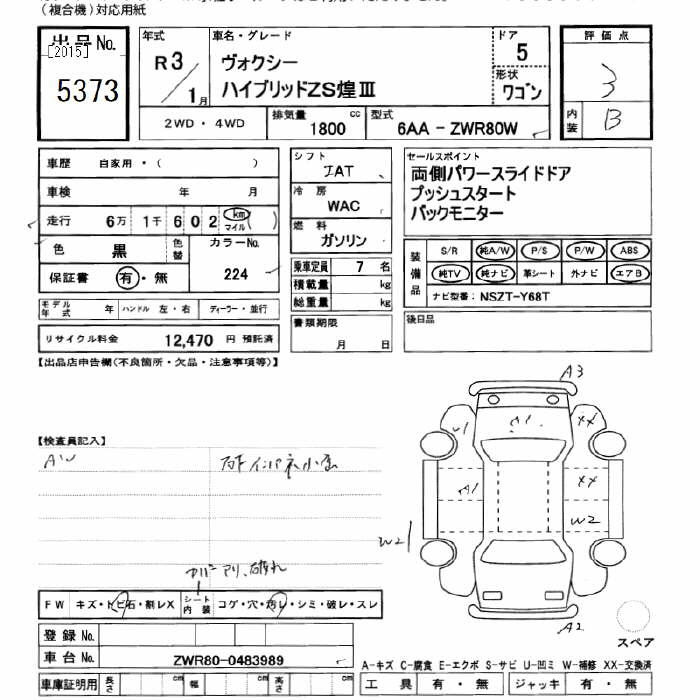 (複合機)対応用紙
出品No.
[2015]
5373
年式
R3/1月
車名・グレード
ヴォクシー
ハイブリッドZS煌Ⅲ
ドア
5
形状
ワゴン
評価点
3
内装
B
2WD・4WD
排気量 1800 cc
型式 6AA-ZWR80W
車歴 自家用・( )
車検 年 月
走行 6万 1千 6 0 2 km マイル ( )
色 黒 色替 カラーNo.
224
保証書 有・無
モデル年式 年 ハンドル 左・右 ディーラー・並行
リサイクル料金 12,470 円 預託済
シフト
IAT
冷房
WAC
燃料
ガソリン
乗車定員 7 名
積載量 kg
総重量 kg
書類期限
月 日
セールスポイント
両側パワースライドドア
プッシュスタート
バックモニター
装備品
S/R 純A/W P/S P/W ABS
純TV 純ナビ 革シート 外ナビ エアB
ナビ型番: NSZT-Y68T
後日品
【出品店申告欄(不良箇所・欠品・注意事項等)】
【検査員記入】
AW
A3
W1
A1
XX
A1
XX
W2
W21
A2
FW キズ・トビ石・割レX シート内装 コゲ・穴・汚レ・シミ・破レ・スレ
登録No.
車台No. ZWR80-0483989
車庫証明用 長さ cm 幅 cm 高さ cm
スペア
A-キズ C-腐食 E-エクボ S-サビ U-凹ミ W-補修 XX-交換済
工具 有・無 ジャッキ 有・無